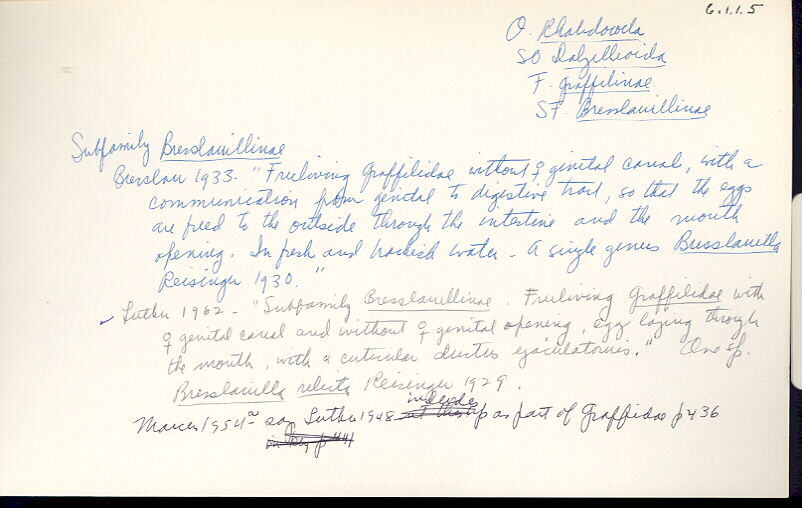 6.1.1.5
O. Rhabdocoela
SO Dalyellioida
F. Graffilinae
SF. Bresslauillinae
Subfamily Bresslauillinae
Bresslau 1933 - "Freeliving Graffilidae without ♀ genital canal, with a
communication from genital to digestive tract, so that the eggs
are freed to the outside through the intestine and the mouth
opening. In fresh and brackish water - A single genus Bresslauilla
Reisinger 1930."
✓ Luther 1962 - "Subfamily Bresslauillinae. Freeliving Graffilidae with
♀ genital canal and without ♀ genital opening, egg laying through
the mouth, with a cuticular ductus ejaculatorius." One sp.
Bresslauilla relicta Reisinger 1929.
Marcus 1954a say Luther 1948 include as part of Graffidae p 436